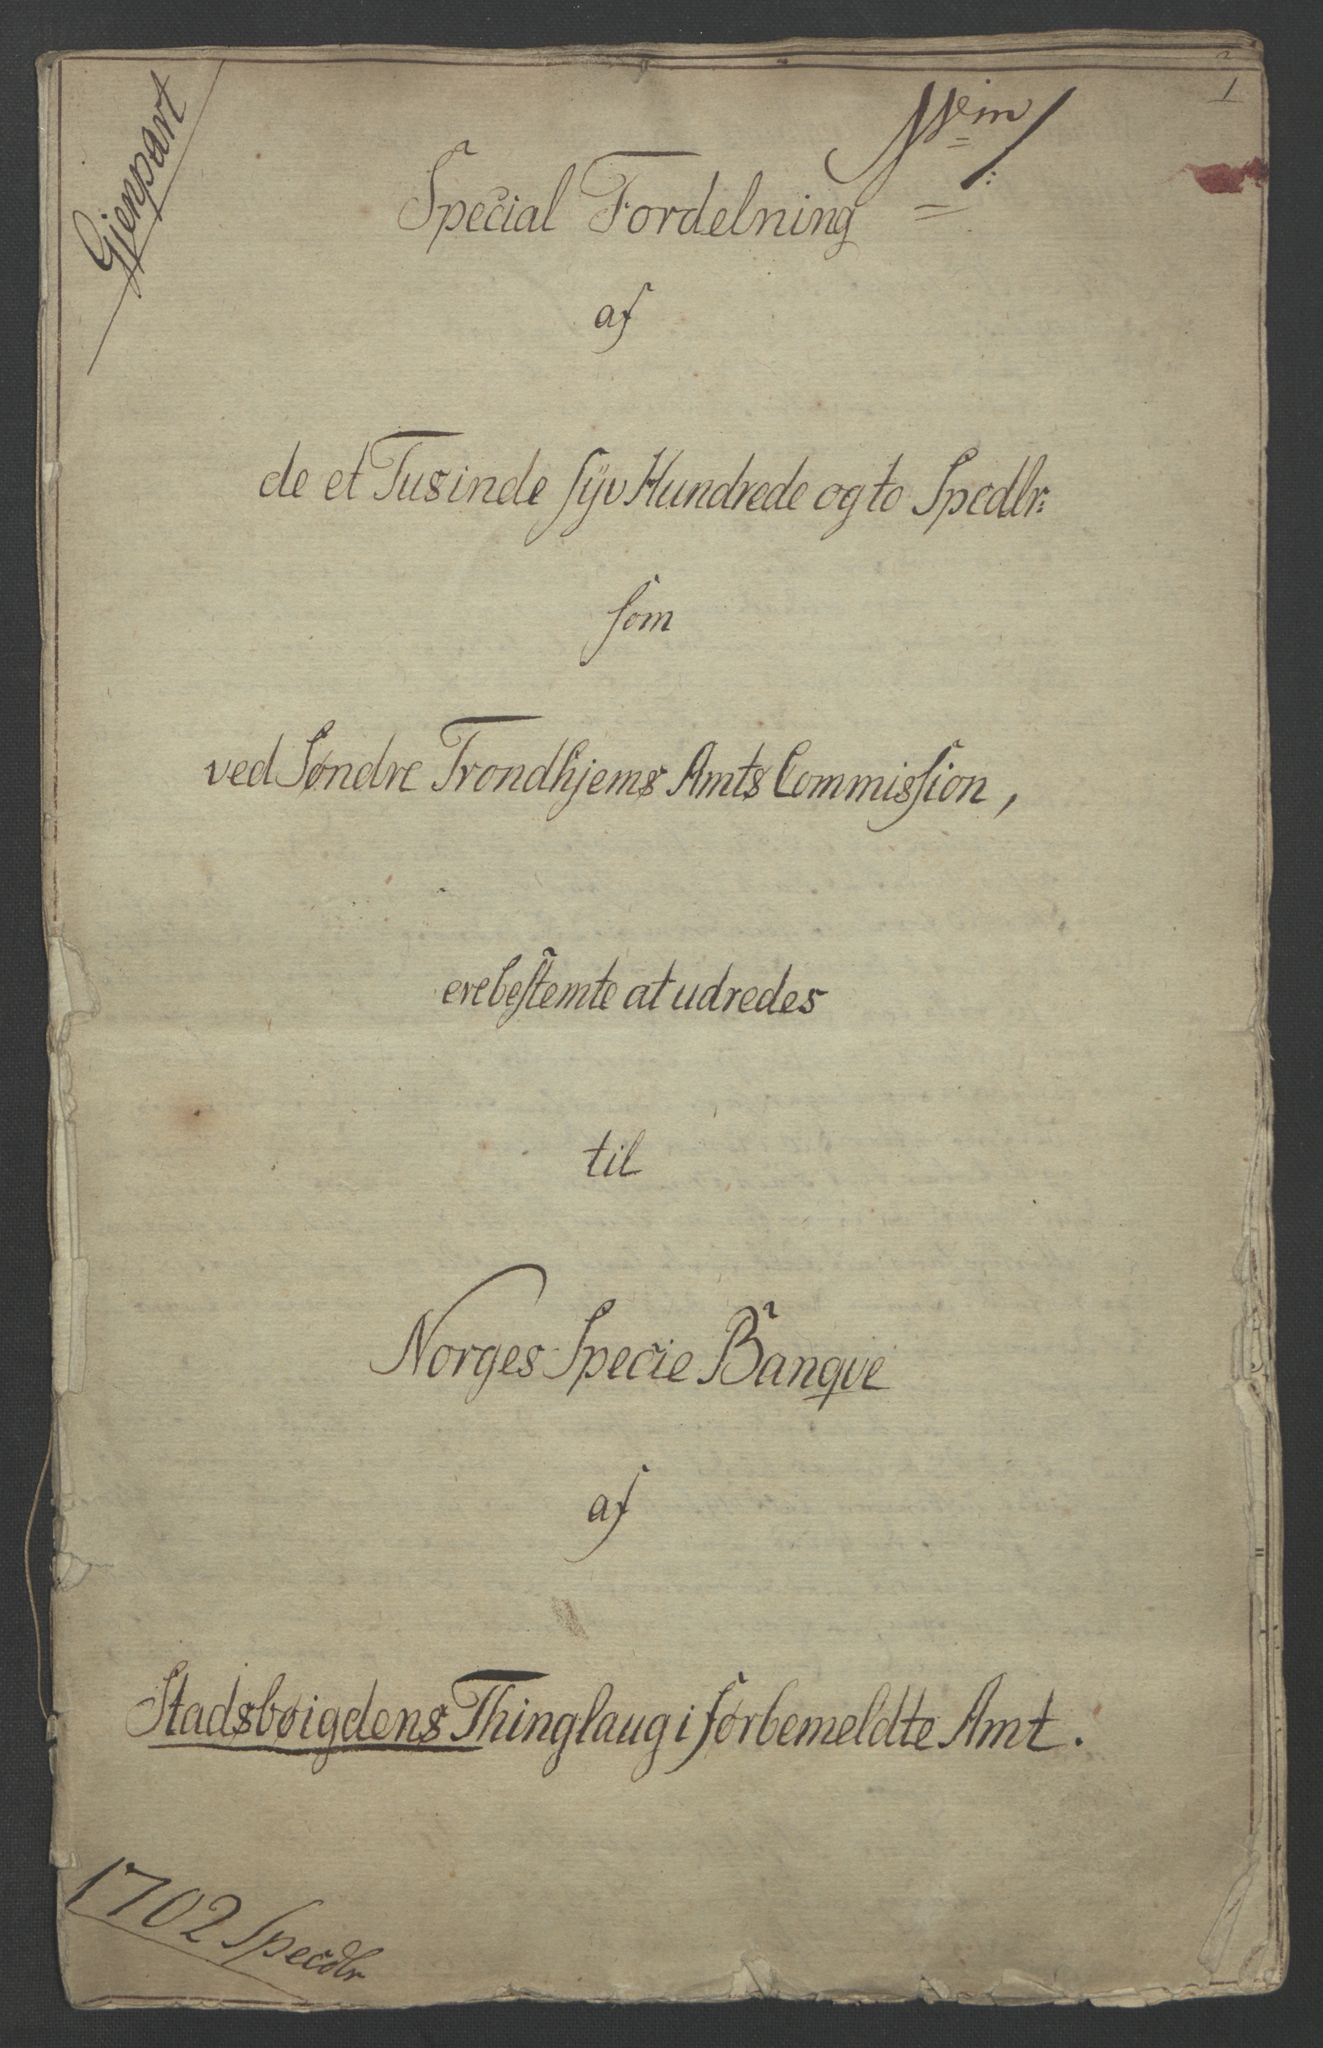 Gjenpart
1
Special Fordelning
af
de et Tusinde syv Hundrede og to Spcdlr:
som
ved Søndre Trondhjems Amts Commission,
ere bestemte at udredes
til
Norges Specie Banqve
af
Stadsbøigdens Thinglaug i førbemeldte Amt.
1702 Specdlr